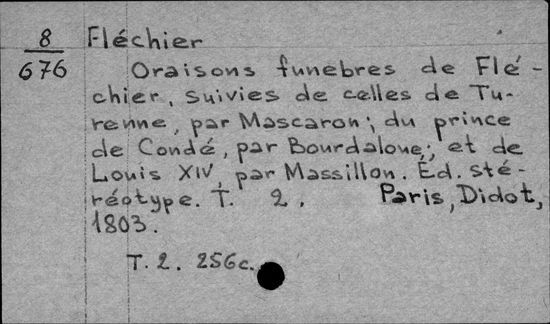 8 Fléchier
676 Oraisons funebres de Flé-
chier, suivies de celles de Tu-
renne, par Mascaron; du prince
de Condé, par Bourdaloue; et de
Louis XIV, par Massillon. Éd. sté-
réotype. T. 2. Paris, Didot,
1803.
T. 2. 256c.